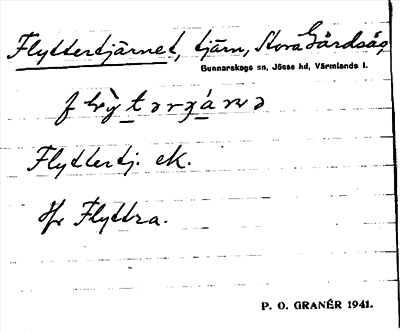 Flyttertjärnet, tjärn, Stora Gårdsåg,
Gunnarskogs sn, Jösse hd, Värmlands l.
Flyttertj. ek.
Jfr Flyttra.
P. O. GRANÉR 1941.